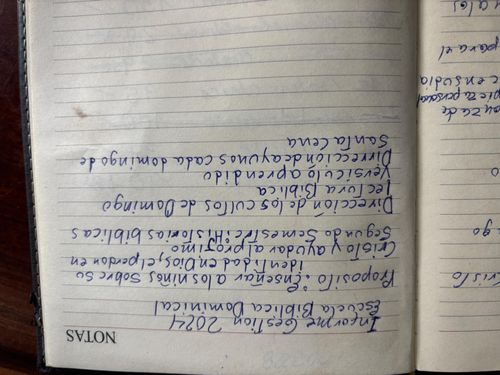 NOTAS
Informe Gestion 2024
Escuela Biblica Dominical
Proposito: Enseñar a los niños sobre su
identidad en Dios, el perdon en
Cristo y ayudar al proximo
Segundo Semestre: Historias biblicas
Dirección de los cultos de Domingo
Lectura Biblica
Versiculo aprendido
Dirrección de ayunos cada domingo de
Santa Cena
para el